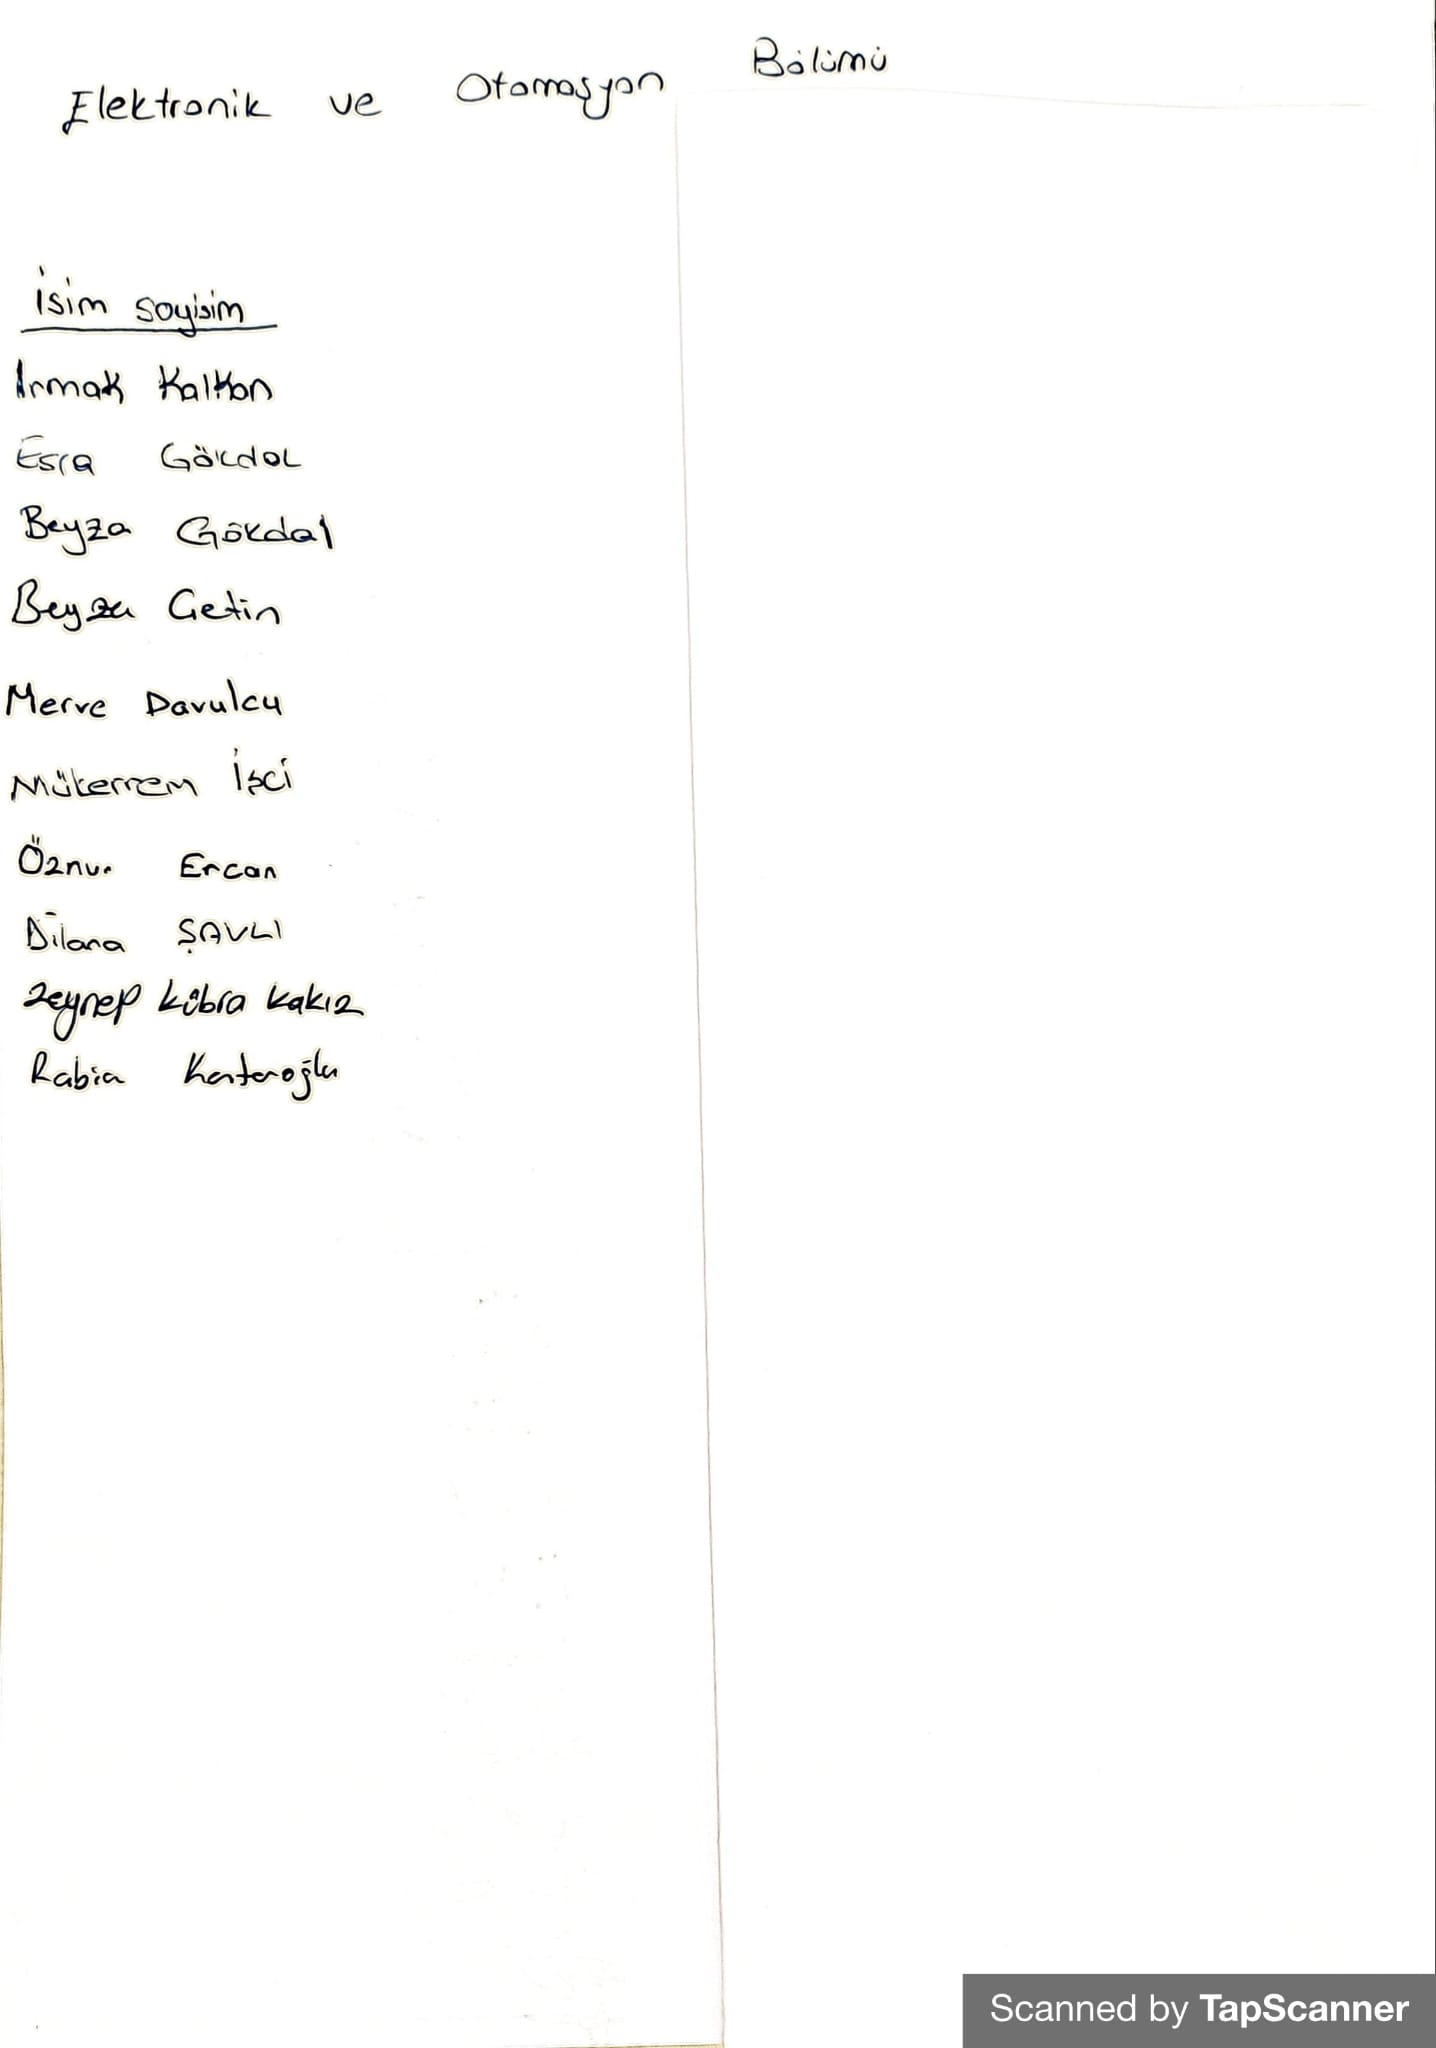 Elektronik ve Otomasyon Bölümü
İsim Soyisim
Irmak Kalkan
Esra Gökdal
Beyza Gökdal
Beyza Çetin
Merve Davulcu
Mükerrem İşci
Öznur Ercan
Dilana ŞAVLI
Zeynep Kübra Kakız
Rabia
Scanned by TapScanner